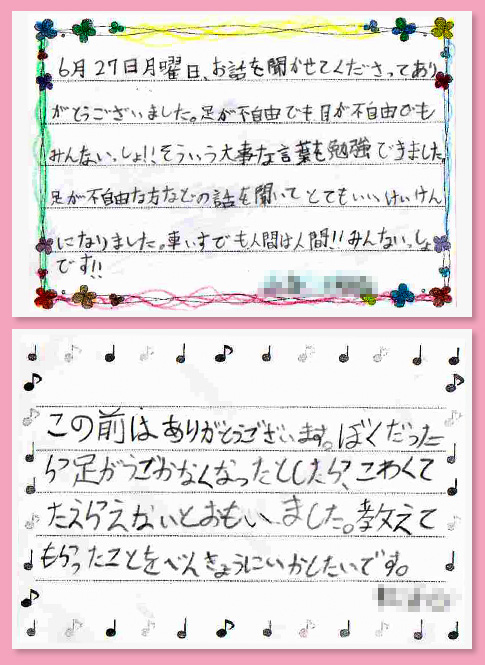 6月27日月曜日、お話を聞かせてくださってあり
がとうございました。足が不自由でも目が不自由でも
みんないっしょ!!そういう大事な言葉を勉強できました。
足が不自由な方などの話を聞いてとてもいいけいけん
になりました。車いすでも人間は人間!!みんないっしょ
です!!
この前はありがとうございます。ぼくだった
ら足がうごかなくなったとしたら、こわくて
たえらえないとおもいました。教えて
もらったことをべんきょうにいかしたいです。